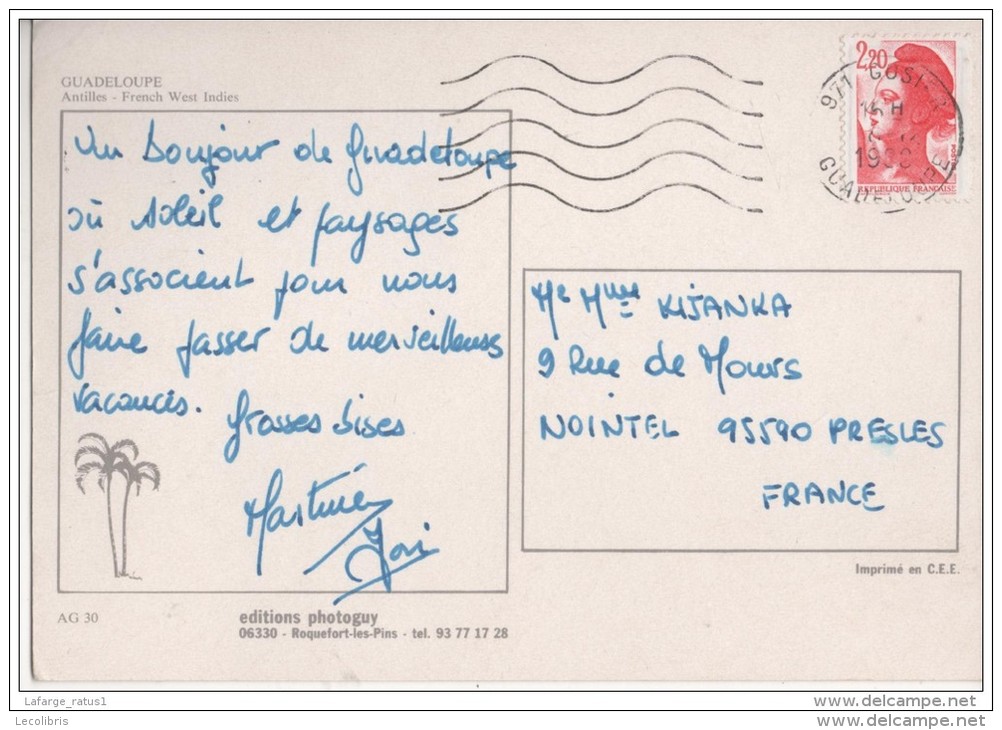 GUADELOUPE
Antilles - French West Indies
Un bonjour de Guadeloupe
où soleil et paysages
s'associent pour nous
faire passer de merveilleuses
vacances.
Grosses bises
AG 30
editions photoguy
06330 - Roquefort-les-Pins - tel. 93 77 17 28
2,20
REPUBLIQUE FRANÇAISE
971 GOSIER
15 H
GUADELOUPE
Mr Mme KIJANKA
9 Rue de Mours
NOINTEL 95590 PRESLES
FRANCE
Imprimé en C.E.E.
Lafarge_ratus1
Lecolibris
www.delcampe.net
www.delcampe.net